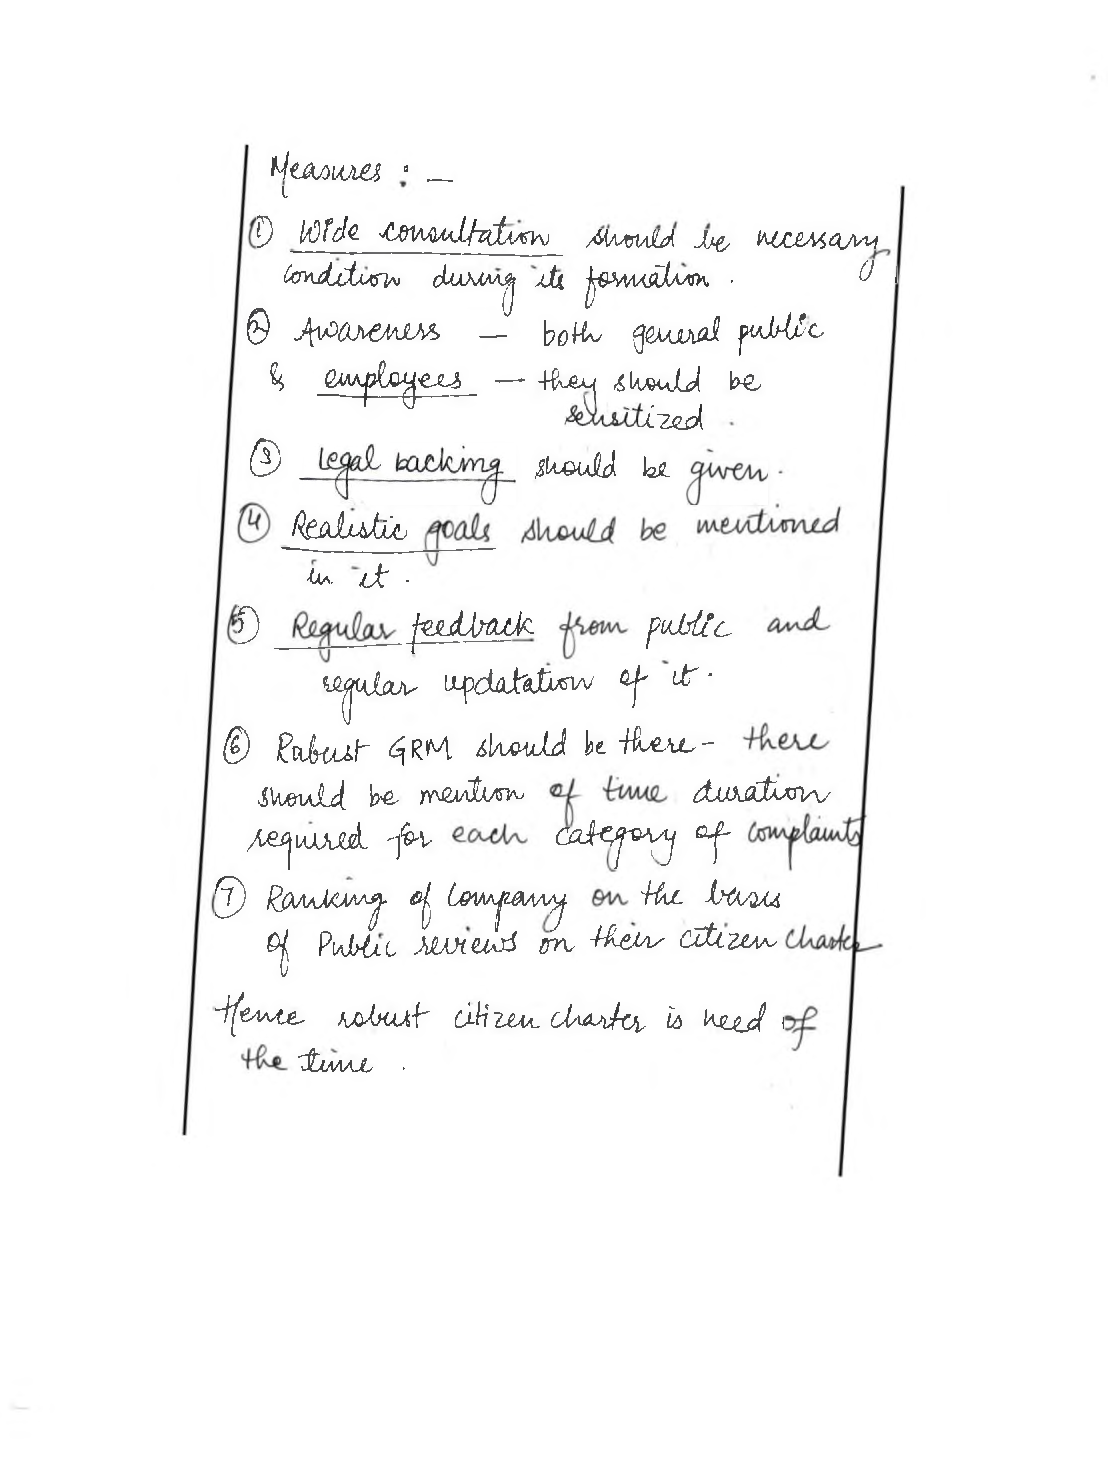 Measures : —
① Wide consultation should be necessary
condition during its formation .
② Awareness — both general public
& employees — they should be
sensitized .
③ Legal backing should be given .
④ Realistic goals should be mentioned
in it .
⑤ Regular feedback from public and
regular updatation of it .
⑥ Robust GRM should be there - there
should be mention of time duration
required for each category of complaints
⑦ Ranking of Company on the basis
of Public reviews on their citizen charter
Hence robust citizen charter is need of
the time .